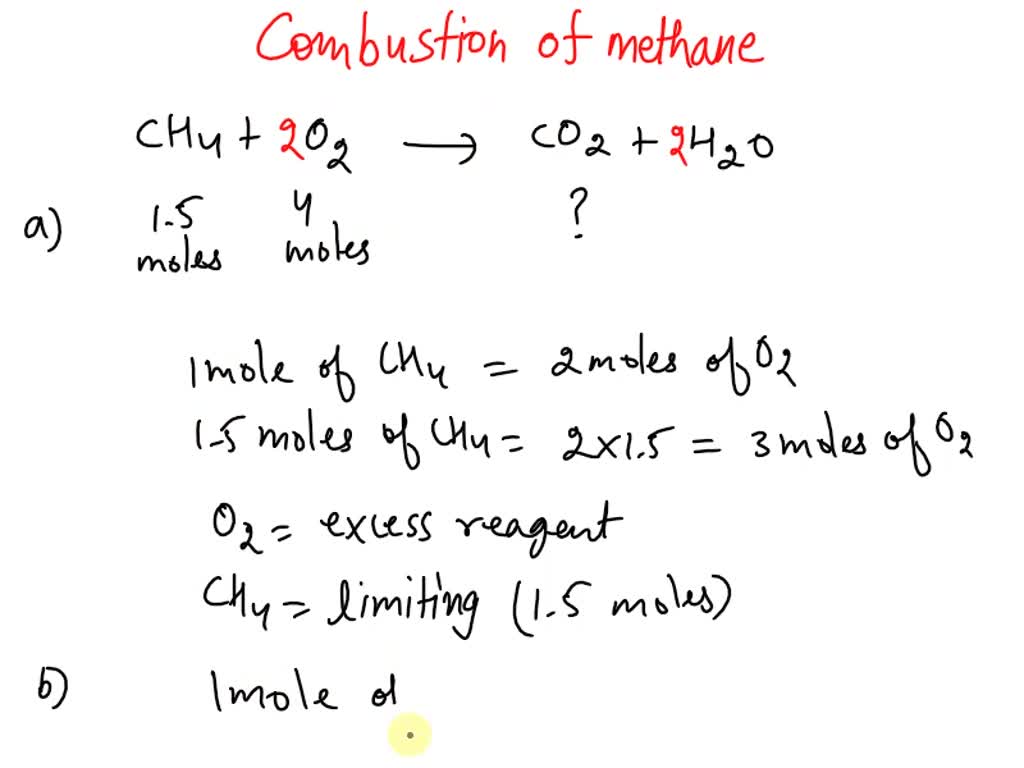 Combustion of methane
CH4 + 2O2 → CO2 + 2H2O
a) 1.5 moles 4 moles ?
1 mole of CH4 = 2 moles of O2
1.5 moles of CH4 = 2×1.5 = 3 moles of O2
O2 = excess reagent
CH4 = limiting (1.5 moles)
b) 1 mole of